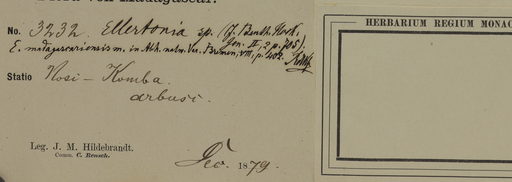 HERBARIUM REGIUM MONAC
No. 3232. Ellertonia sp. (f. Benth. Hook.
Gen. II, 2 p. 705).
E. madagascariensis m. in Abh. natw. Ver. Bremen, VII, p. 402.
Statio Nosi - Komba.
arbusc.
Leg. J. M. Hildebrandt.
Comm. C. Rensch.
Dec. 1879.